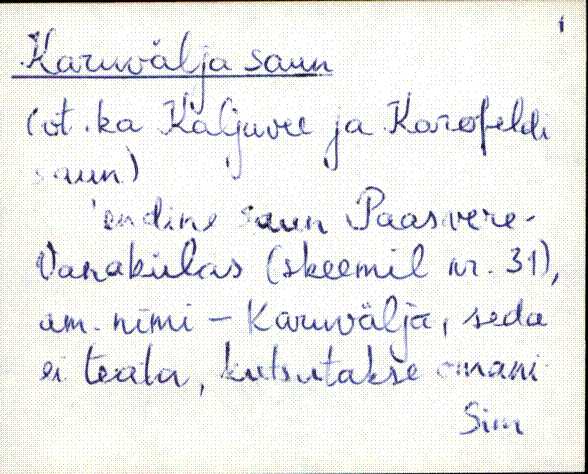 1
Karuvälja saun
(vt. ka Kaljuvee ja Karofeldi
saun)
'endine saun Paasvere-
Vanakülas (skeemil nr. 31),
am. nimi - Karuvälja, seda
ei teata, kutsutakse omani-
Sim